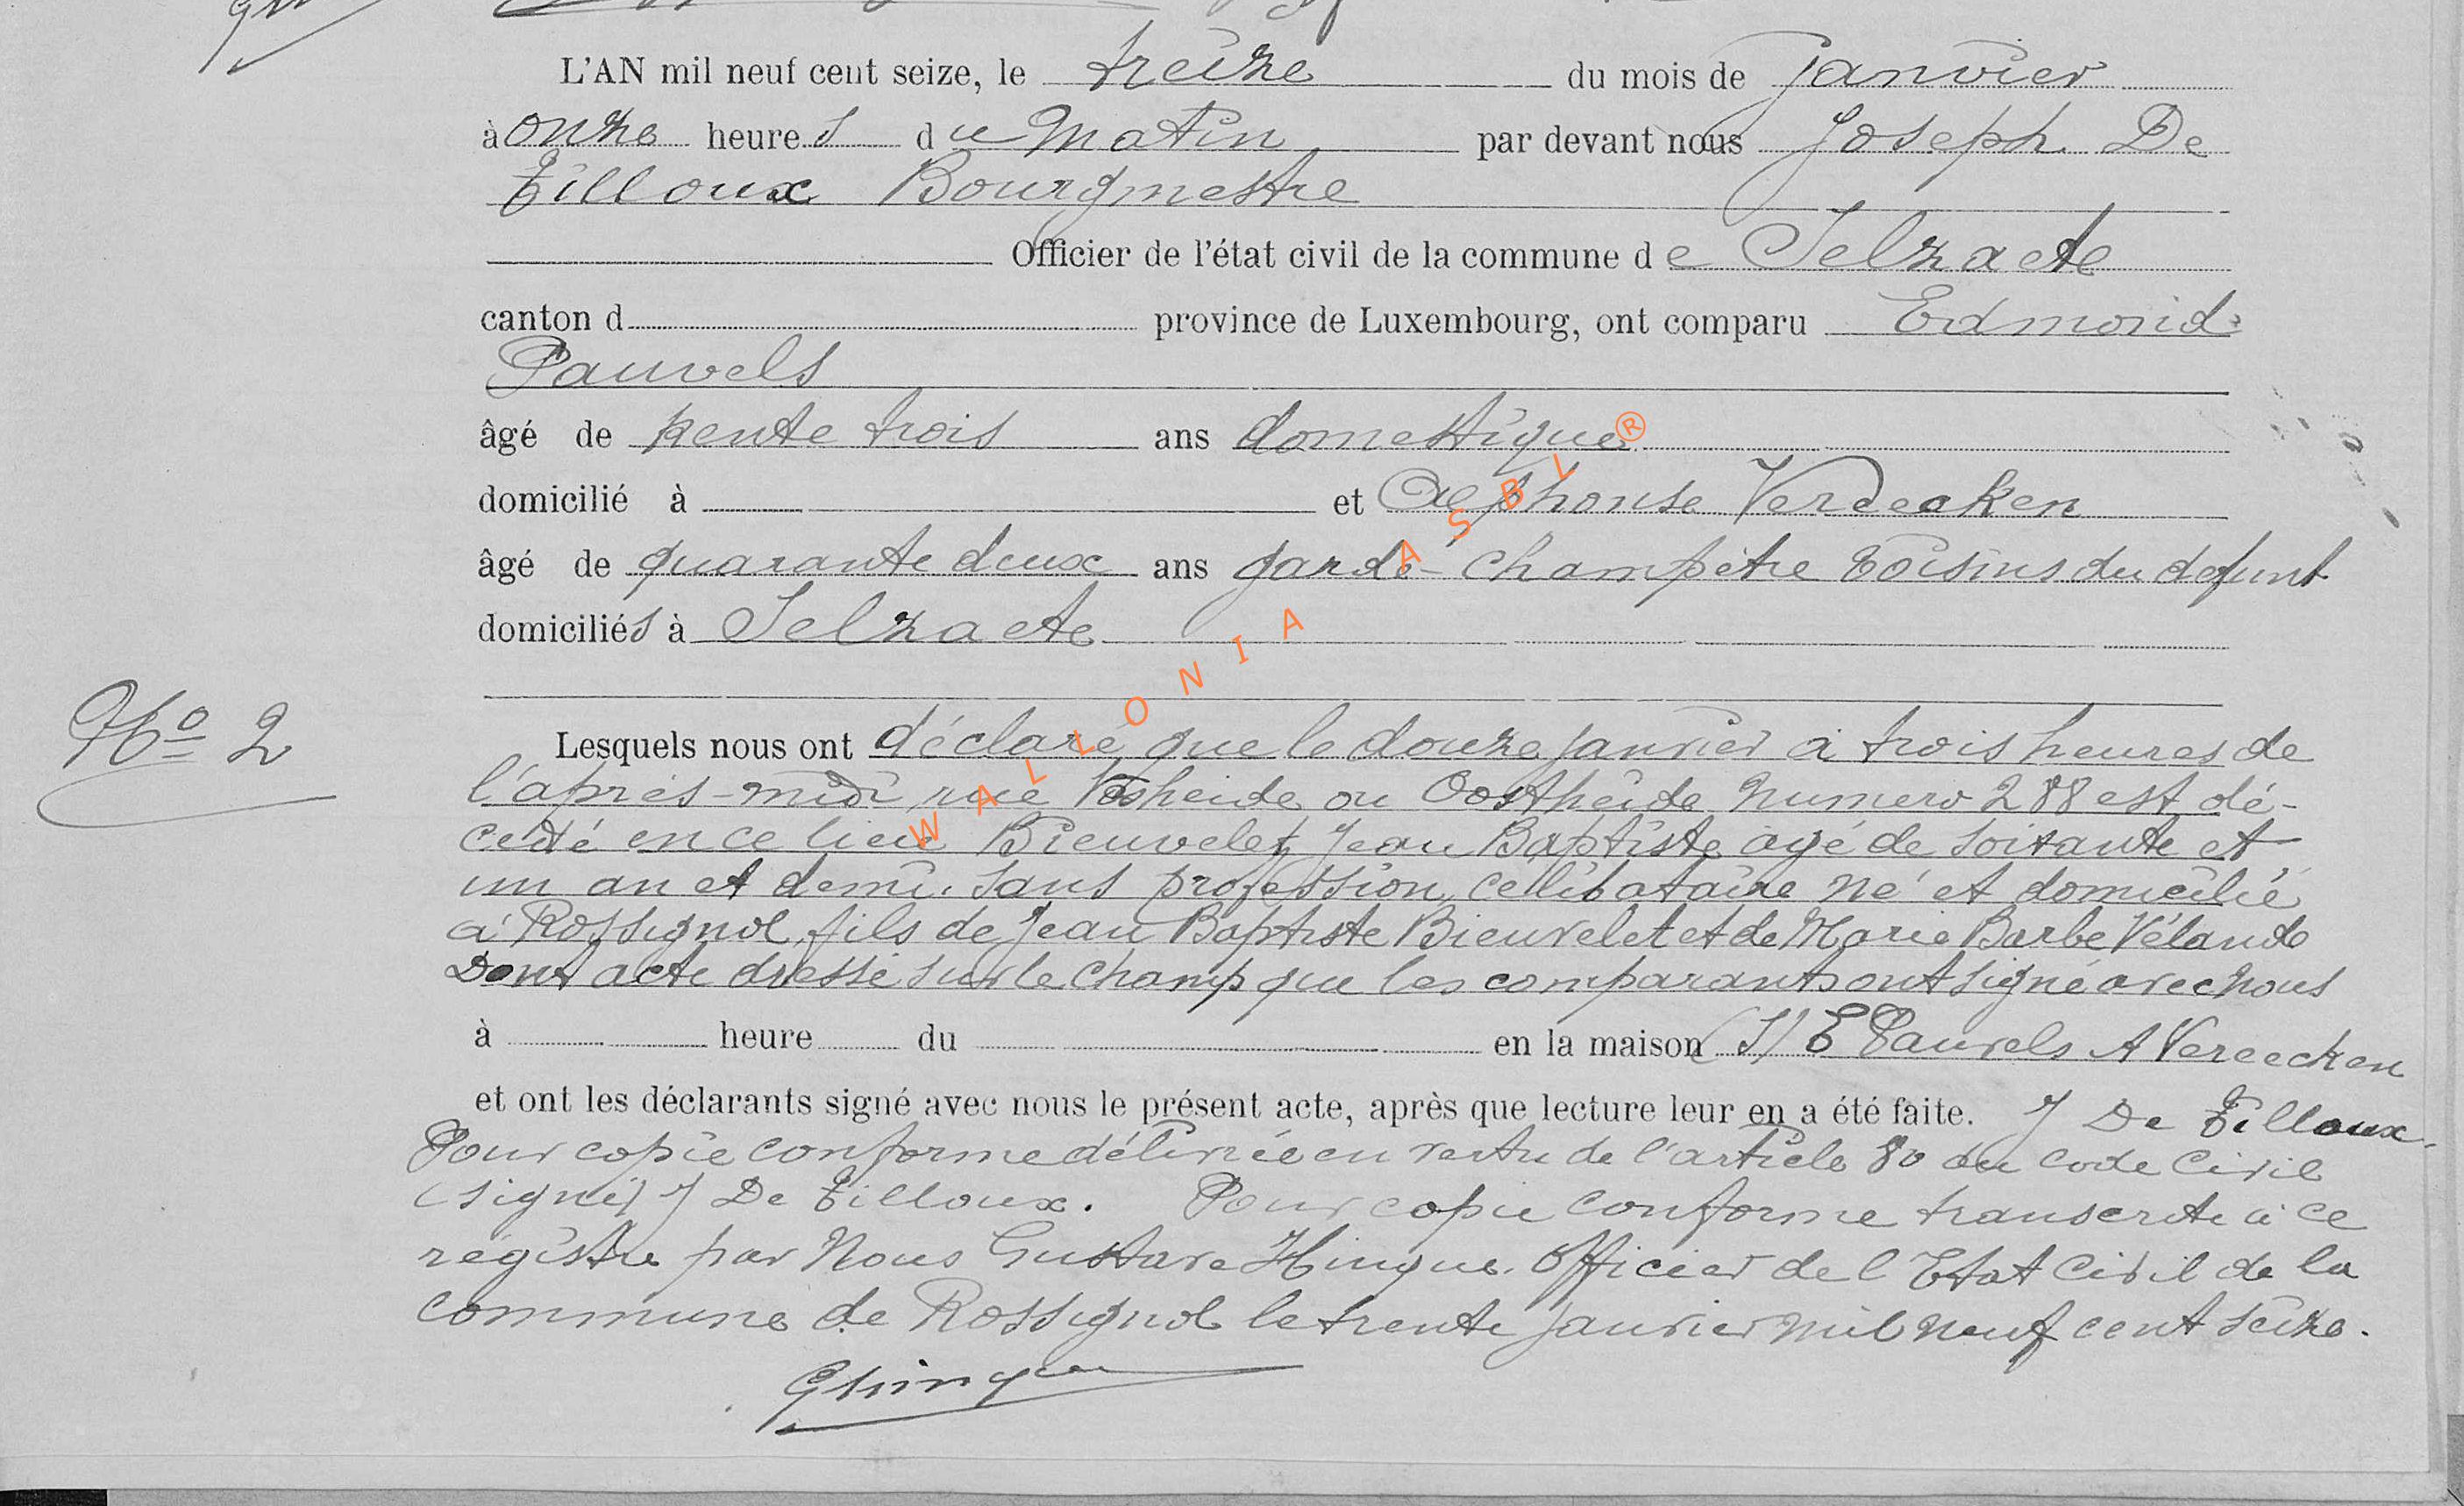 L'AN mil neuf cent seize, le treize du mois de janvier
à onze heures du Matin par devant nous Joseph De
Tilloux Bourgmestre
Officier de l'état civil de la commune de Selzaete
canton d province de Luxembourg, ont comparu Edmond
Pauwels
âgé de trente trois ans domestique
domicilié à et Alphonse Vereecken
âgé de quarante deux ans garde-champêtre voisins du defunt
domiciliés à Selzaete
No 2
Lesquels nous ont déclaré que le douze janvier à trois heures de
l'après-midi rue ou Oostheide numero 288 est dé-
cédé en ce lieu Bieuvelet Jean Baptiste agé de soixante et
un an et demi, sans profession, celibataire né et domicilié
à Rossignol, fils de Jean Baptiste Bieuvelet et de Marie Barbe
Dont acte dressé sur le champ que les comparants ont signé avec nous
à heure du en la maison (s/ E Pauwels A Vereecken
et ont les déclarants signé avec nous le présent acte, après que lecture leur en a été faite. J De Tilloux.
Pour copie conforme délivrée en vertu de l'article 80 du code Civil
(signé) J De Tilloux. Pour copie conforme transcrite à ce
registre par Nous Gustave Hinque Officier de l'Etat Civil de la
commune de Rossignol le trente janvier mil neuf cent seize.
GHinque
WALLONIA ASBL ®